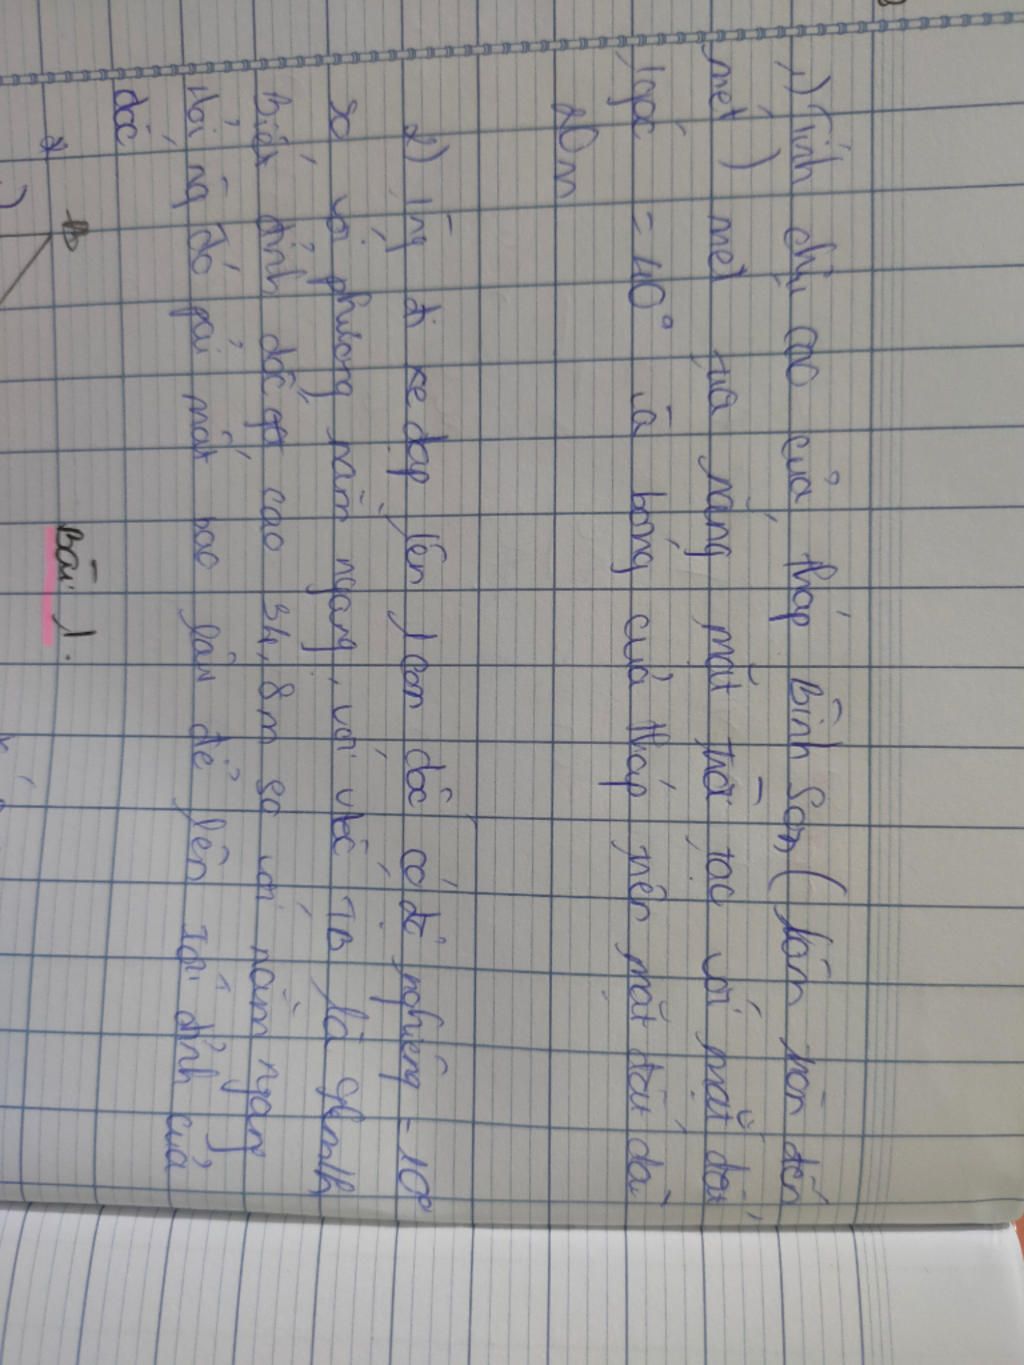 1) Tính chiều cao của tháp Bình Sơn (làm tròn đến
mét) biết tia nắng mặt trời tạc với mặt đất
1 góc = 40° và bóng của tháp trên mặt đất dài
20m
2) 1 ng đi xe đạp lên 1 con dốc có độ nghiêng = 10°
so với phương nằm ngang, với vtốc TB là 9km/h
Biết đỉnh dốc cao 34,8m so với nằm ngang
Hỏi ng đó phải mất bao lâu để lên tới đỉnh của
dốc
Bài 1.
B